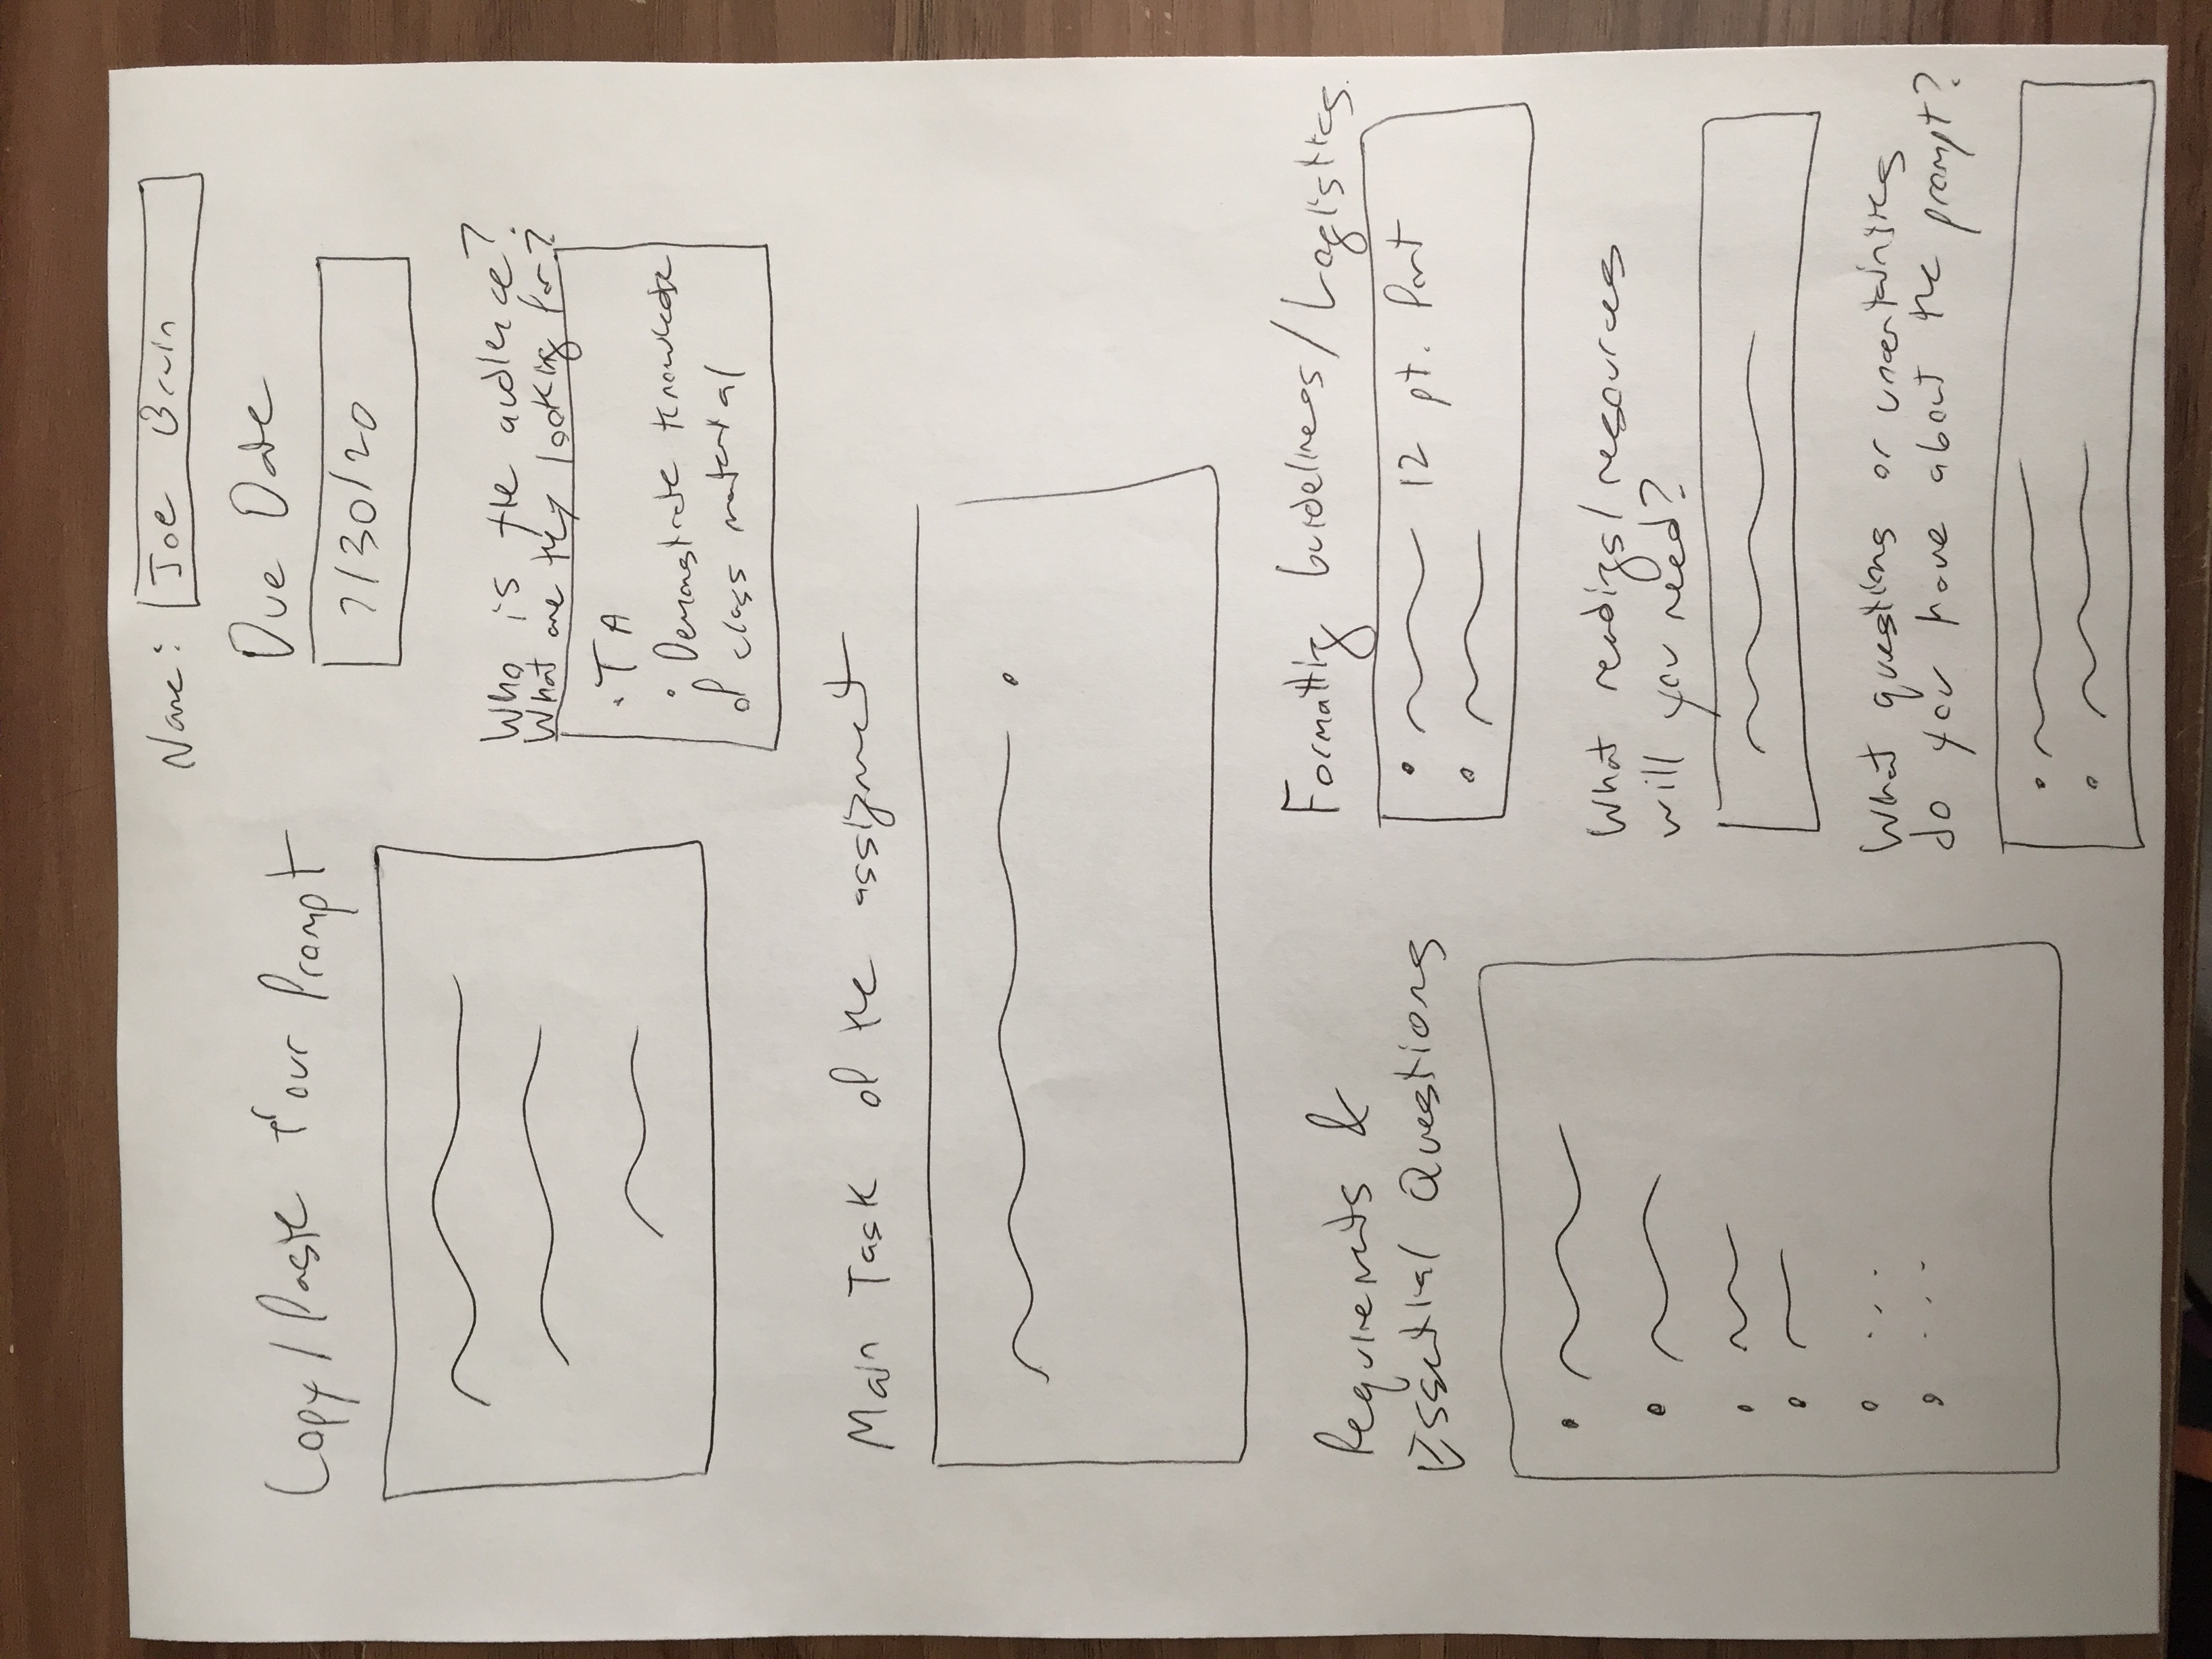 Name: Joe Bruin
Due Date
7/30/20
Copy/Paste Your Prompt
Who is the audience?
What are they looking for?
· TA
· Demonstrate knowledge
of class material
Main Task of the assignment
Requirements &
Essential Questions
Formatting Guidelines/Logistics
• 12 pt. font
What readings/resources
will you need?
What questions or uncertainties
do you have about the prompt?